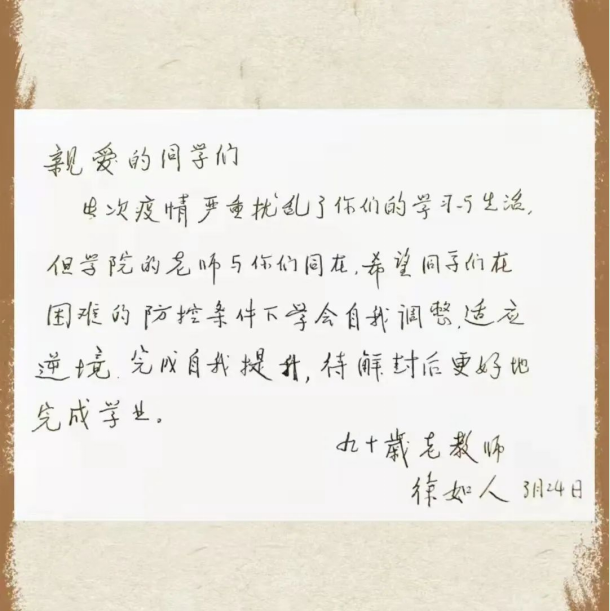 亲爱的同学们
此次疫情严重扰乱了你们的学习与生活，
但学院的老师与你们同在，希望同学们在
困难的防控条件下学会自我调整，适应
逆境，完成自我提升，待解封后更好地
完成学业。
九十歲老教师
徐如人 3月24日